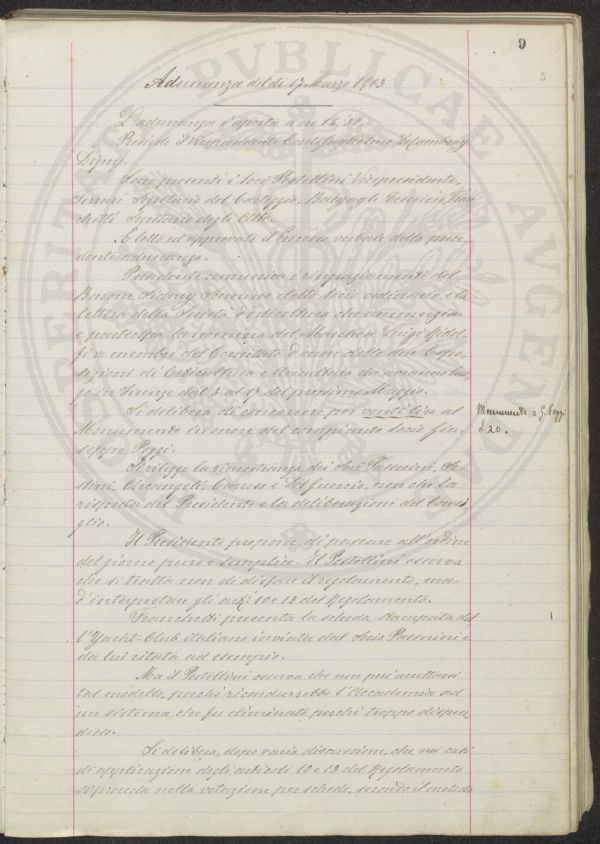 9
5
Adunanza del dì 17 Marzo 1903
L'adunanza è aperta a ore 14,30.
Presiede il Vicepresidente Conte Guglielmo De Cambray
Digny.
Son presenti i Soci Pestellini Vicepresidente,
Segretario del Carteggio, Federico, Fran
chetti Segretario degli Atti.
È letto ed approvato il processo verbale della prece
dente adunanza.
Presidente comunica i ringraziamenti del
Barone Sidney Sonnino eletto Socio ordinario e la
lettera della Società d'orticultura che annunzia
e partecipa la nomina del Marchese Luigi Ridol
fi a membro del Comitato d'onore delle due Espo
sizioni di Orticultura e Avicultura che avranno luo
go in Firenze dal 3 al 17 del prossimo Maggio.
Si delibera di concorrere per venti lire al
Monumento in onore del compianto Socio Giu
seppe Poggi.
Monumento a G. Poggi
£ 20.
Si rilegge la rimostranza dei Soci Passerini, Se
stini, Arcangeli, Caruso e Del Guercio, non che la
risposta del Presidente e la deliberazione del Consi
glio.
Il Presidente propone di passare all'ordine
del giorno puro e semplice. Il Pestellini osserva
che si tratta non di disfare il regolamento, ma
d'interpretare gli art.i 10 e 13 del Regolamento.
Franchetti presenta la scheda stampata del
l'Yacht-Club italiano inviata dal Socio Passerini e
da lui citata ad esempio.
Ma il Pestellini osserva che non può accettarsi
tal modello, perchè ricondurrebbe l'Accademia ad
un sistema che fu eliminato perchè troppo dispen
dioso.
Si delibera, dopo varia discussione, che nei casi
di applicazione degli articoli 10 e 13 del Regolamento
si proceda nella votazione per schede, secondo il metodo
PROSPERITATI PVBLICAE AVGENDAE